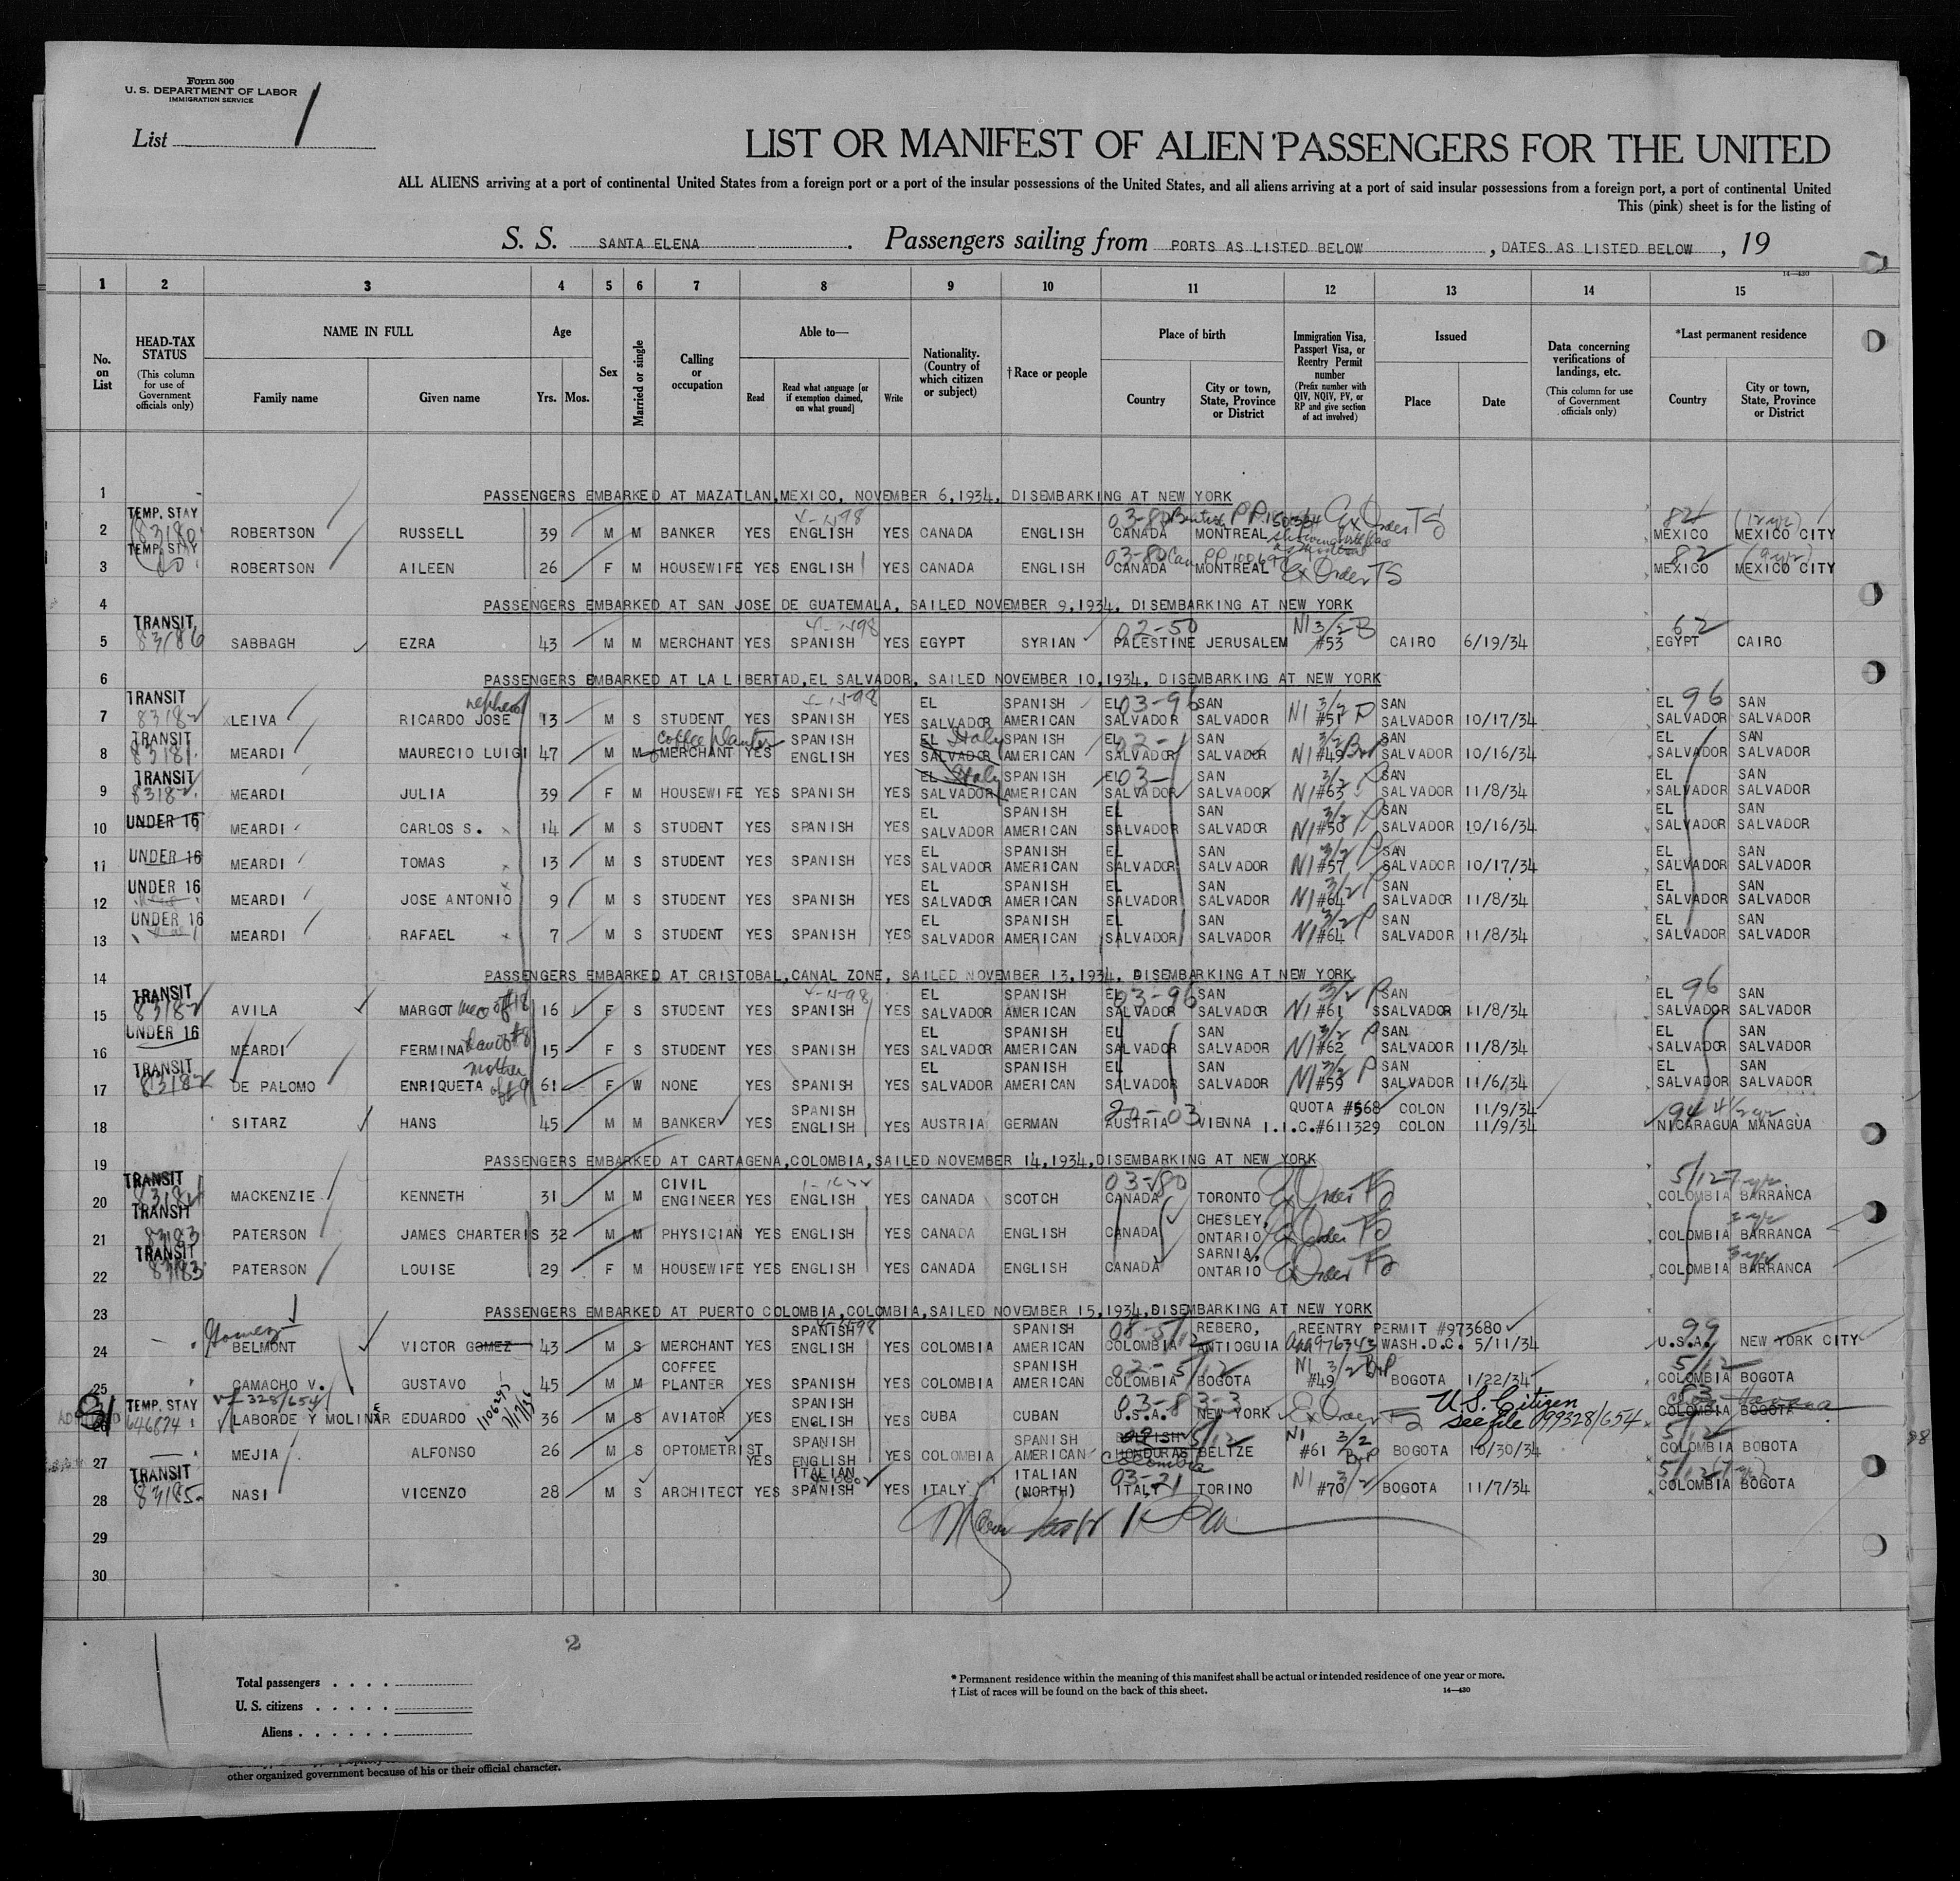 Form 500
U. S. DEPARTMENT OF LABOR
IMMIGRATION SERVICE
List 1
LIST OR MANIFEST OF ALIEN PASSENGERS FOR THE UNITED
ALL ALIENS arriving at a port of continental United States from a foreign port or a port of the insular possessions of the United States, and all aliens arriving at a port of said insular possessions from a foreign port, a port of continental United
This (pink) sheet is for the listing of
S. S. SANTA ELENA . Passengers sailing from PORTS AS LISTED BELOW , DATES AS LISTED BELOW , 19
14—430
1 2 3 4 5 6 7 8 9 10 11 12 13 14 15
No. on List
HEAD-TAX STATUS (This column for use of Government officials only)
NAME IN FULL Family name Given name
Age Yrs. Mos.
Sex
Married or single
Calling or occupation
Able to— Read Read what language [or if exemption claimed, on what ground] Write
Nationality. (Country of which citizen or subject)
† Race or people
Place of birth Country City or town, State, Province or District
Immigration Visa, Passport Visa, or Reentry Permit number (Prefix number with QIV, NQIV, PV, or RP and give section of act involved)
Issued Place Date
Data concerning verifications of landings, etc. (This column for use of Government officials only)
*Last permanent residence Country City or town, State, Province or District
1 PASSENGERS EMBARKED AT MAZATLAN, MEXICO, NOVEMBER 6, 1934, DISEMBARKING AT NEW YORK
2 TEMP. STAY 83180 ROBERTSON RUSSELL 39 M M BANKER YES ENGLISH YES CANADA ENGLISH 03-80 CANADA MONTREAL Ex Order TS 82 MEXICO MEXICO CITY
3 TEMP. STAY ROBERTSON AILEEN 26 F M HOUSEWIFE YES ENGLISH YES CANADA ENGLISH 03-80 CANADA MONTREAL Ex Order TS 82 MEXICO MEXICO CITY
4 PASSENGERS EMBARKED AT SAN JOSE DE GUATEMALA, SAILED NOVEMBER 9, 1934, DISEMBARKING AT NEW YORK
5 TRANSIT 83186 SABBAGH EZRA 43 M M MERCHANT YES SPANISH YES EGYPT SYRIAN 02-50 PALESTINE JERUSALEM NI 3/2 B #53 CAIRO 6/19/34 62 EGYPT CAIRO
6 PASSENGERS EMBARKED AT LA LIBERTAD, EL SALVADOR, SAILED NOVEMBER 10, 1934, DISEMBARKING AT NEW YORK
7 TRANSIT 83182 XLEIVA RICARDO JOSE nephew 13 M S STUDENT YES SPANISH YES EL SALVADOR SPANISH AMERICAN 03-96 EL SALVADOR SAN SALVADOR NI 3/2 P #51 SAN SALVADOR 10/17/34 96 EL SALVADOR SAN SALVADOR
8 TRANSIT 83181 MEARDI MAURECIO LUIGI 47 M M coffee planter MERCHANT YES SPANISH ENGLISH EL SALVADOR Italy SPANISH AMERICAN EL SALVADOR SAN SALVADOR NI 3/2 #49 SAN SALVADOR 10/16/34 EL SALVADOR SAN SALVADOR
9 TRANSIT 83182 MEARDI JULIA 39 F M HOUSEWIFE YES SPANISH YES EL SALVADOR Italy SPANISH AMERICAN 03- EL SALVADOR SAN SALVADOR NI 3/2 P #63 SAN SALVADOR 11/8/34 EL SALVADOR SAN SALVADOR
10 UNDER 16 MEARDI CARLOS S. 14 M S STUDENT YES SPANISH YES EL SALVADOR SPANISH AMERICAN EL SALVADOR SAN SALVADOR NI 3/2 P #50 SAN SALVADOR 10/16/34 EL SALVADOR SAN SALVADOR
11 UNDER 16 MEARDI TOMAS 13 M S STUDENT YES SPANISH YES EL SALVADOR SPANISH AMERICAN EL SALVADOR SAN SALVADOR NI 3/2 P #57 SAN SALVADOR 10/17/34 EL SALVADOR SAN SALVADOR
12 UNDER 16 MEARDI JOSE ANTONIO 9 M S STUDENT YES SPANISH YES EL SALVADOR SPANISH AMERICAN EL SALVADOR SAN SALVADOR NI 3/2 P #64 SAN SALVADOR 11/8/34 EL SALVADOR SAN SALVADOR
13 UNDER 16 MEARDI RAFAEL 7 M S STUDENT YES SPANISH YES EL SALVADOR SPANISH AMERICAN EL SALVADOR SAN SALVADOR NI 3/2 P #64 SAN SALVADOR 11/8/34 EL SALVADOR SAN SALVADOR
14 PASSENGERS EMBARKED AT CRISTOBAL, CANAL ZONE, SAILED NOVEMBER 13, 1934, DISEMBARKING AT NEW YORK
15 TRANSIT 83182 AVILA MARGOT 16 F S STUDENT YES SPANISH YES EL SALVADOR SPANISH AMERICAN 03-96 EL SALVADOR SAN SALVADOR NI 3/2 P #61 SAN SSALVADOR 11/8/34 96 EL SALVADOR SAN SALVADOR
16 UNDER 16 MEARDI FERMINA 15 F S STUDENT YES SPANISH YES EL SALVADOR SPANISH AMERICAN EL SALVADOR SAN SALVADOR NI 3/2 P #62 SAN SALVADOR 11/8/34 EL SALVADOR SAN SALVADOR
17 TRANSIT 83182 DE PALOMO ENRIQUETA mother of #9 61 F W NONE YES SPANISH YES EL SALVADOR SPANISH AMERICAN EL SALVADOR SAN SALVADOR NI 3/2 P #59 SAN SALVADOR 11/6/34 EL SALVADOR SAN SALVADOR
18 SITARZ HANS 45 M M BANKER YES SPANISH ENGLISH YES AUSTRIA GERMAN AUSTRIA VIENNA QUOTA #568 COLON 11/9/34 I.I.C.#611329 COLON 11/9/34 94 4 1/2 yr NICARAGUA MANAGUA
19 PASSENGERS EMBARKED AT CARTAGENA, COLOMBIA, SAILED NOVEMBER 14, 1934, DISEMBARKING AT NEW YORK
20 TRANSIT 83182 MACKENZIE KENNETH 31 M M CIVIL ENGINEER YES ENGLISH YES CANADA SCOTCH 03-80 CANADA TORONTO Ex Order 5/12 COLOMBIA BARRANCA
21 TRANSIT 83183 PATERSON JAMES CHARTERIS 32 M M PHYSICIAN YES ENGLISH YES CANADA ENGLISH CANADA CHESLEY, ONTARIO Ex Order COLOMBIA BARRANCA
22 TRANSIT 83183 PATERSON LOUISE 29 F M HOUSEWIFE YES ENGLISH YES CANADA ENGLISH CANADA SARNIA, ONTARIO Ex Order COLOMBIA BARRANCA
23 PASSENGERS EMBARKED AT PUERTO COLOMBIA, COLOMBIA, SAILED NOVEMBER 15, 1934, DISEMBARKING AT NEW YORK
24 Gomez BELMONT VICTOR GOMEZ 43 M S MERCHANT YES SPANISH ENGLISH YES COLOMBIA SPANISH AMERICAN COLOMBIA REBERO, ANTIOGUIA REENTRY PERMIT #973680 WASH.D.C. 5/11/34 99 U.S.A. NEW YORK CITY
25 CAMACHO V. GUSTAVO 45 M M COFFEE PLANTER YES SPANISH YES COLOMBIA SPANISH AMERICAN COLOMBIA BOGOTA NI 3/2 #49 BOGOTA 1/22/34 5/12 COLOMBIA BOGOTA
26 TEMP. STAY LABORDE Y MOLINAR EDUARDO 36 M S AVIATOR YES SPANISH ENGLISH YES CUBA CUBAN U.S.A. NEW YORK Ex Order U.S. Citizen see file 99328/654 COLOMBIA BOGOTA
27 MEJIA ALFONSO 26 M S OPTOMETRIST YES SPANISH ENGLISH YES COLOMBIA SPANISH AMERICAN BRITISH HONDURAS Colombia BELTZE NI 3/2 #61 BOGOTA 10/30/34 5/12 COLOMBIA BOGOTA
28 TRANSIT 83185 NASI VICENZO 28 M S ARCHITECT YES ITALIAN SPANISH YES ITALY ITALIAN (NORTH) 03-21 ITALY TORINO NI 3/2 #70 BOGOTA 11/7/34 5/12 COLOMBIA BOGOTA
29
30
2
Total passengers . . . .
U. S. citizens . . . . .
Aliens . . . . . .
* Permanent residence within the meaning of this manifest shall be actual or intended residence of one year or more.
† List of races will be found on the back of this sheet.
14—430
other organized government because of his or their official character.